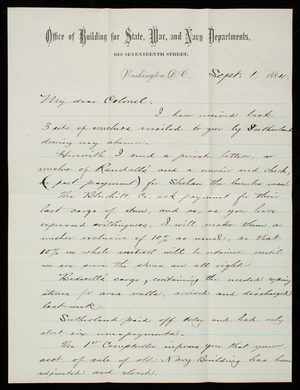 Office of Building for State, War, and Navy Departments,
612 SEVENTEENTH STREET,
Washington, D.C. Sept. 1, 1884.
My dear Colonel:
I have received back
3 sets of vouchers mailed to you by Sutherland
during my absence.
Herewith I send a private letter, a
voucher of Randall's and a voucher and check,
(part payment) for Shehan the lumber man.
The Bluehill Co. ask payment for their
last cargo of stone, and so, as you have
expressed willingness, I will make them a
voucher exclusive of 10% as usual, so that
10% on whole contract will be retained until
we are sure the stones are all right.
Bodwell's cargo, containing the needed coping
stones for area walls, arrived and discharged
last week.
Sutherland paid off today and had only
about six non-payments.
The 1st Comptroller informs you that your
acct. of sale of old Navy Building has been
adjusted and closed.